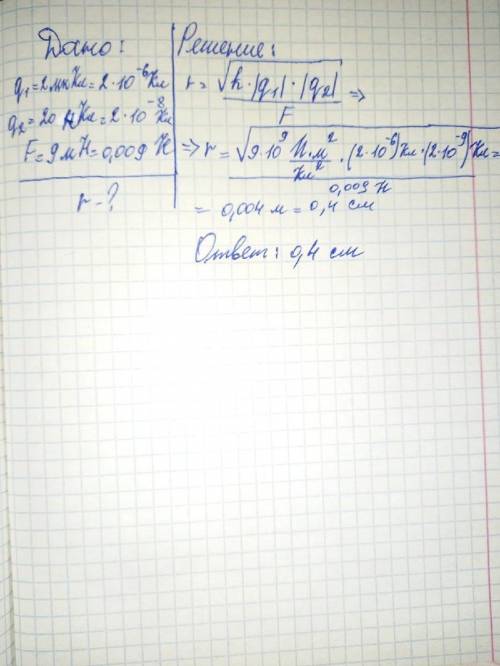 Дано:
q₁=2мкКл=2·10⁻⁶Кл
q₂=20 нКл=2·10⁻⁸Кл
F=9мН=0,009 Н
r-?
Решение:
r=√k·|q₁|·|q₂|/F ⇒
⇒ r=√9·10⁹ Н·м²/Кл²·(2·10⁻⁶)Кл·(2·10⁻⁹)Кл/0,009 Н=
= 0,004 м=0,4 см
Ответ: 0,4 см